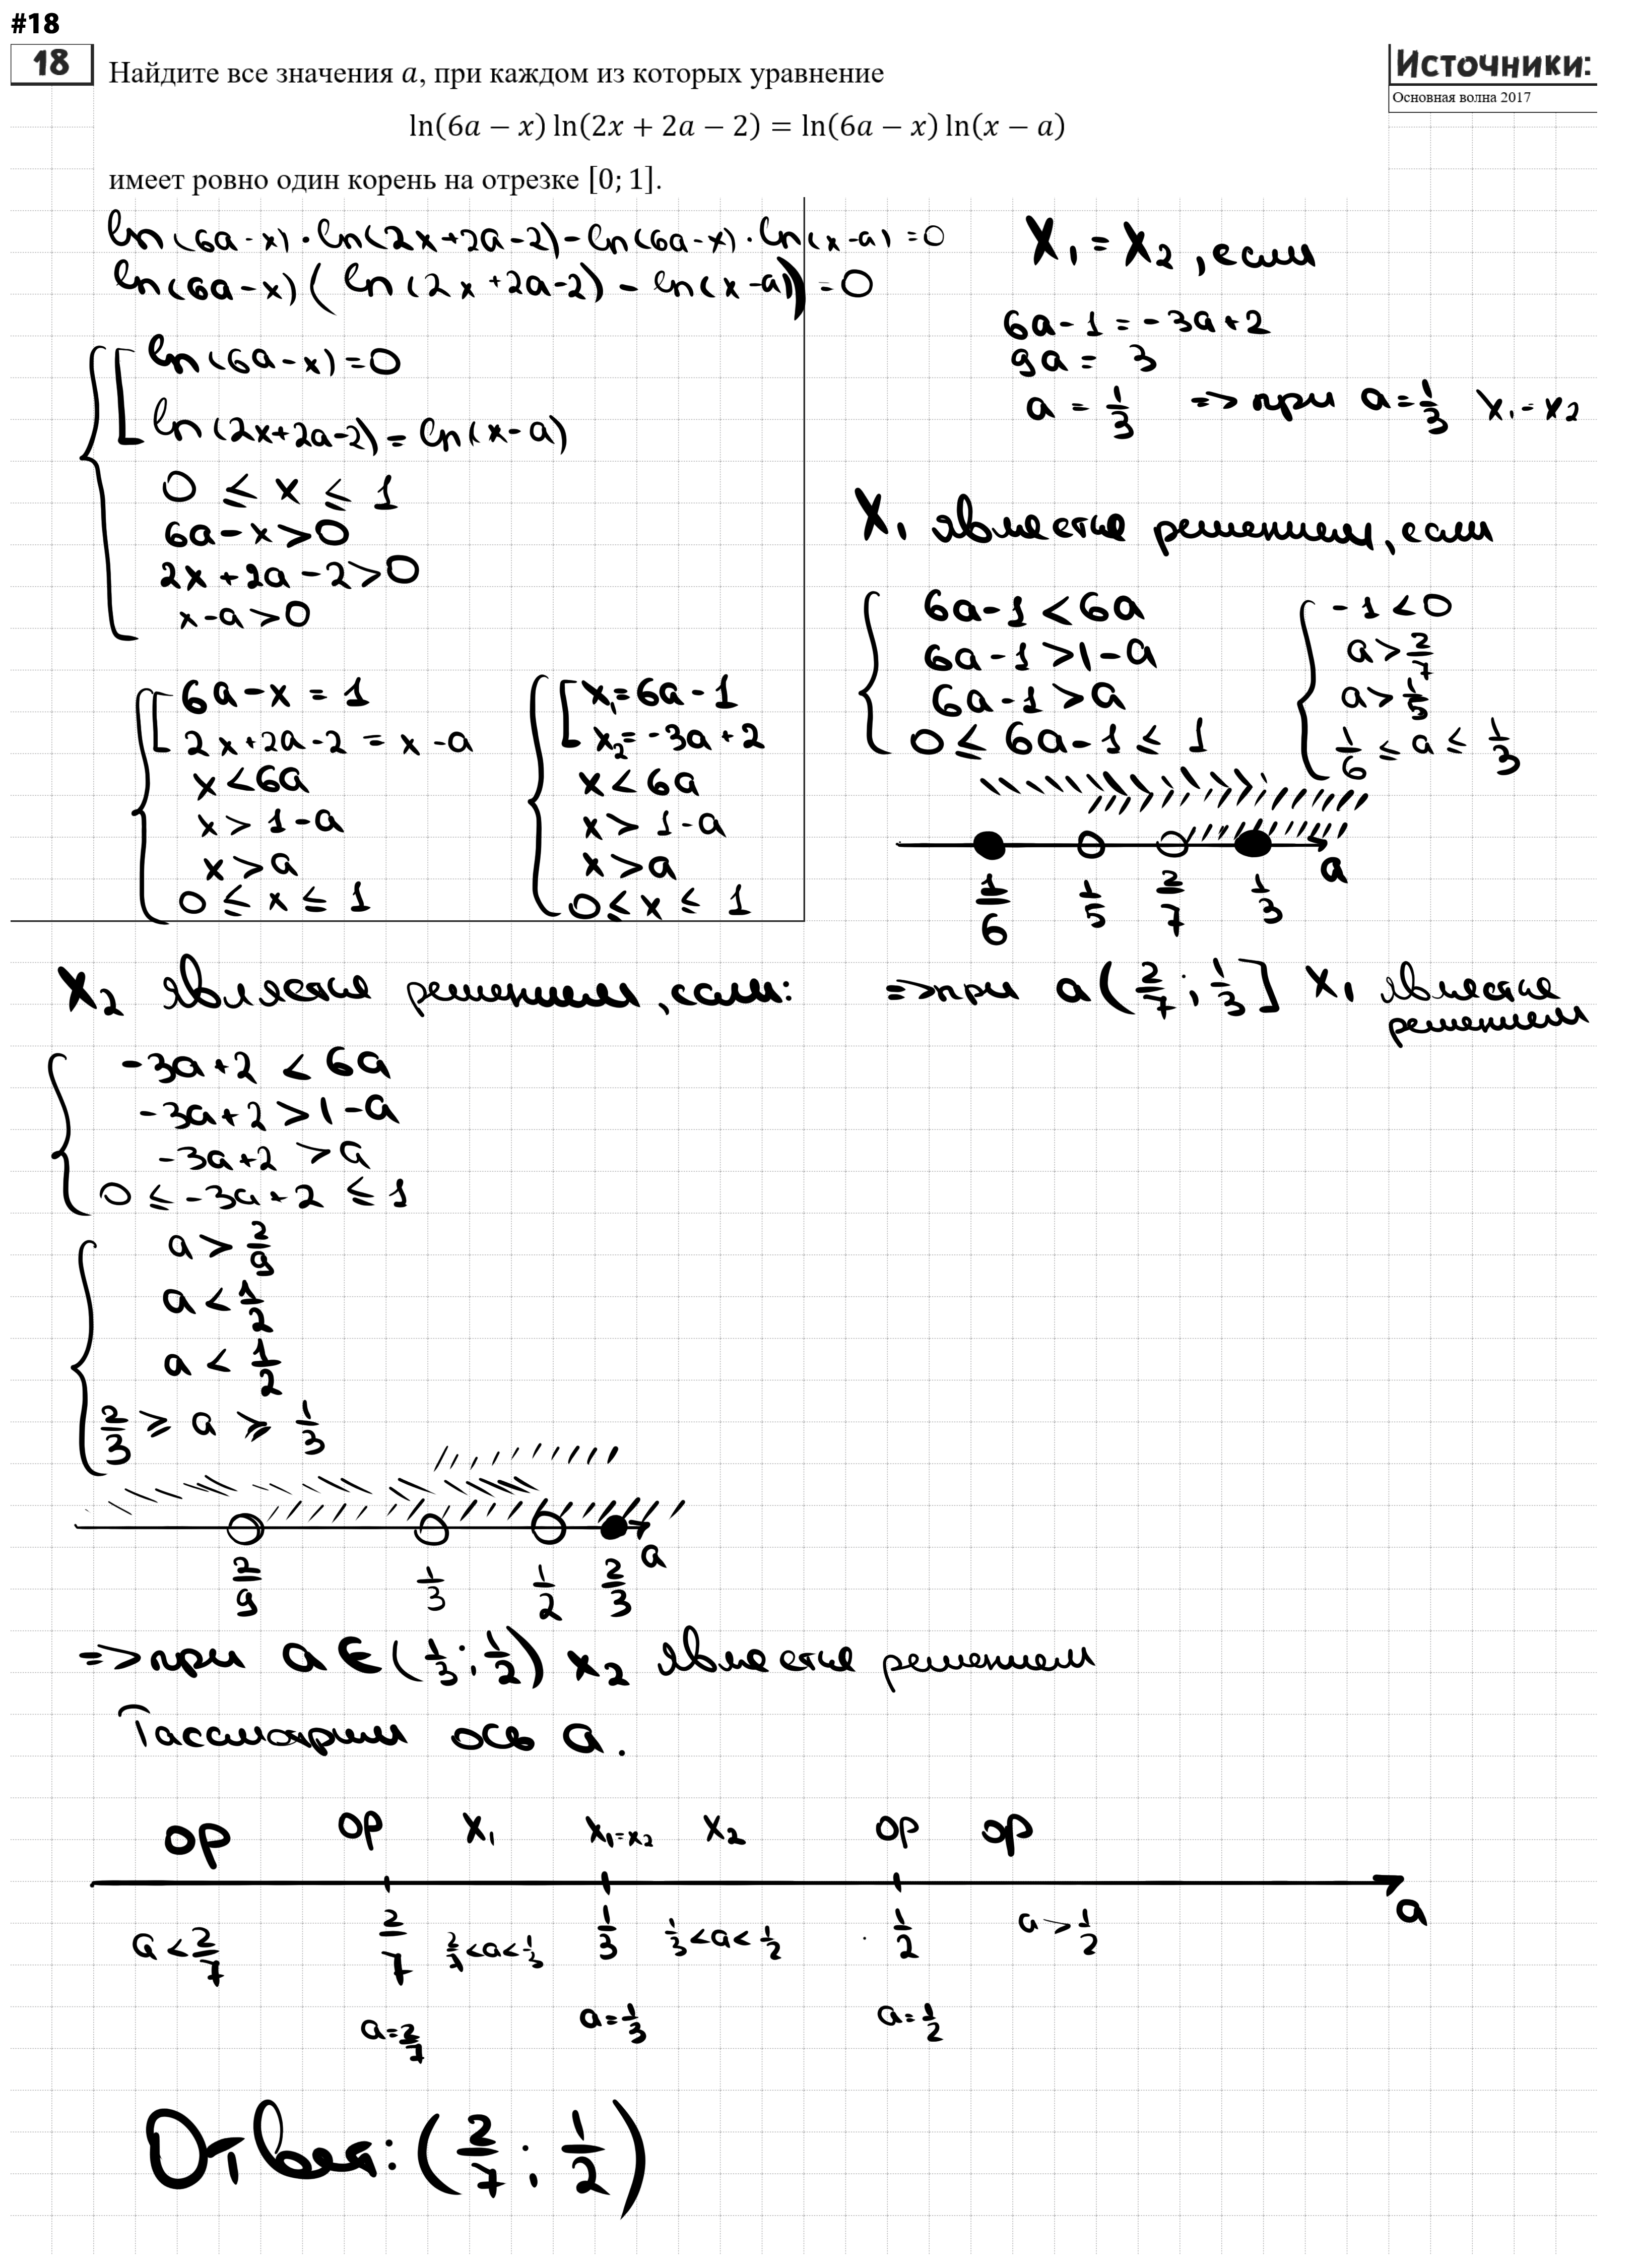 #18
18
Найдите все значения a, при каждом из которых уравнение
Источники:
Основная волна 2017
ln(6a − x) ln(2x + 2a − 2) = ln(6a − x) ln(x − a)
имеет ровно один корень на отрезке [0; 1].
ln(6a-x)·ln(2x+2a-2)-ln(6a-x)·ln(x-a)=0
ln(6a-x)(ln(2x+2a-2)-ln(x-a))=0
ln(6a-x)=0
ln(2x+2a-2)=ln(x-a)
0 ≤ x ≤ 1
6a-x>0
2x+2a-2>0
x-a>0
6a-x=1
2x+2a-2=x-a
x<6a
x>1-a
x>a
0 ≤ x ≤ 1
x₁=6a-1
x₂=-3a+2
x<6a
x>1-a
x>a
0 ≤ x ≤ 1
x₁=x₂, если
6a-1=-3a+2
9a=3
a=1/3 => при a=1/3 x₁=x₂
x₁ является решением, если
6a-1<6a
6a-1>1-a
6a-1>a
0 ≤ 6a-1 ≤ 1
-1<0
a>2/7
a>1/5
1/6 ≤ a ≤ 1/3
a
1/6 1/5 2/7 1/3
=> при a(2/7; 1/3] x₁ является
решением
x₂ является решением, если:
-3a+2<6a
-3a+2>1-a
-3a+2>a
0 ≤ -3a+2 ≤ 1
a>2/9
a<1/2
a<1/2
2/3 ≥ a ≥ 1/3
a
2/9 1/3 1/2 2/3
=> при a∈(1/3; 1/2) x₂ является решением
Рассмотрим ось a.
ор ор x₁ x₁=x₂ x₂ ор ор
a
a<2/7 2/7 2/7<a<1/3 1/3 1/3<a<1/2 1/2 a>1/2
a=2/7 a=1/3 a=1/2
Ответ: (2/7; 1/2)